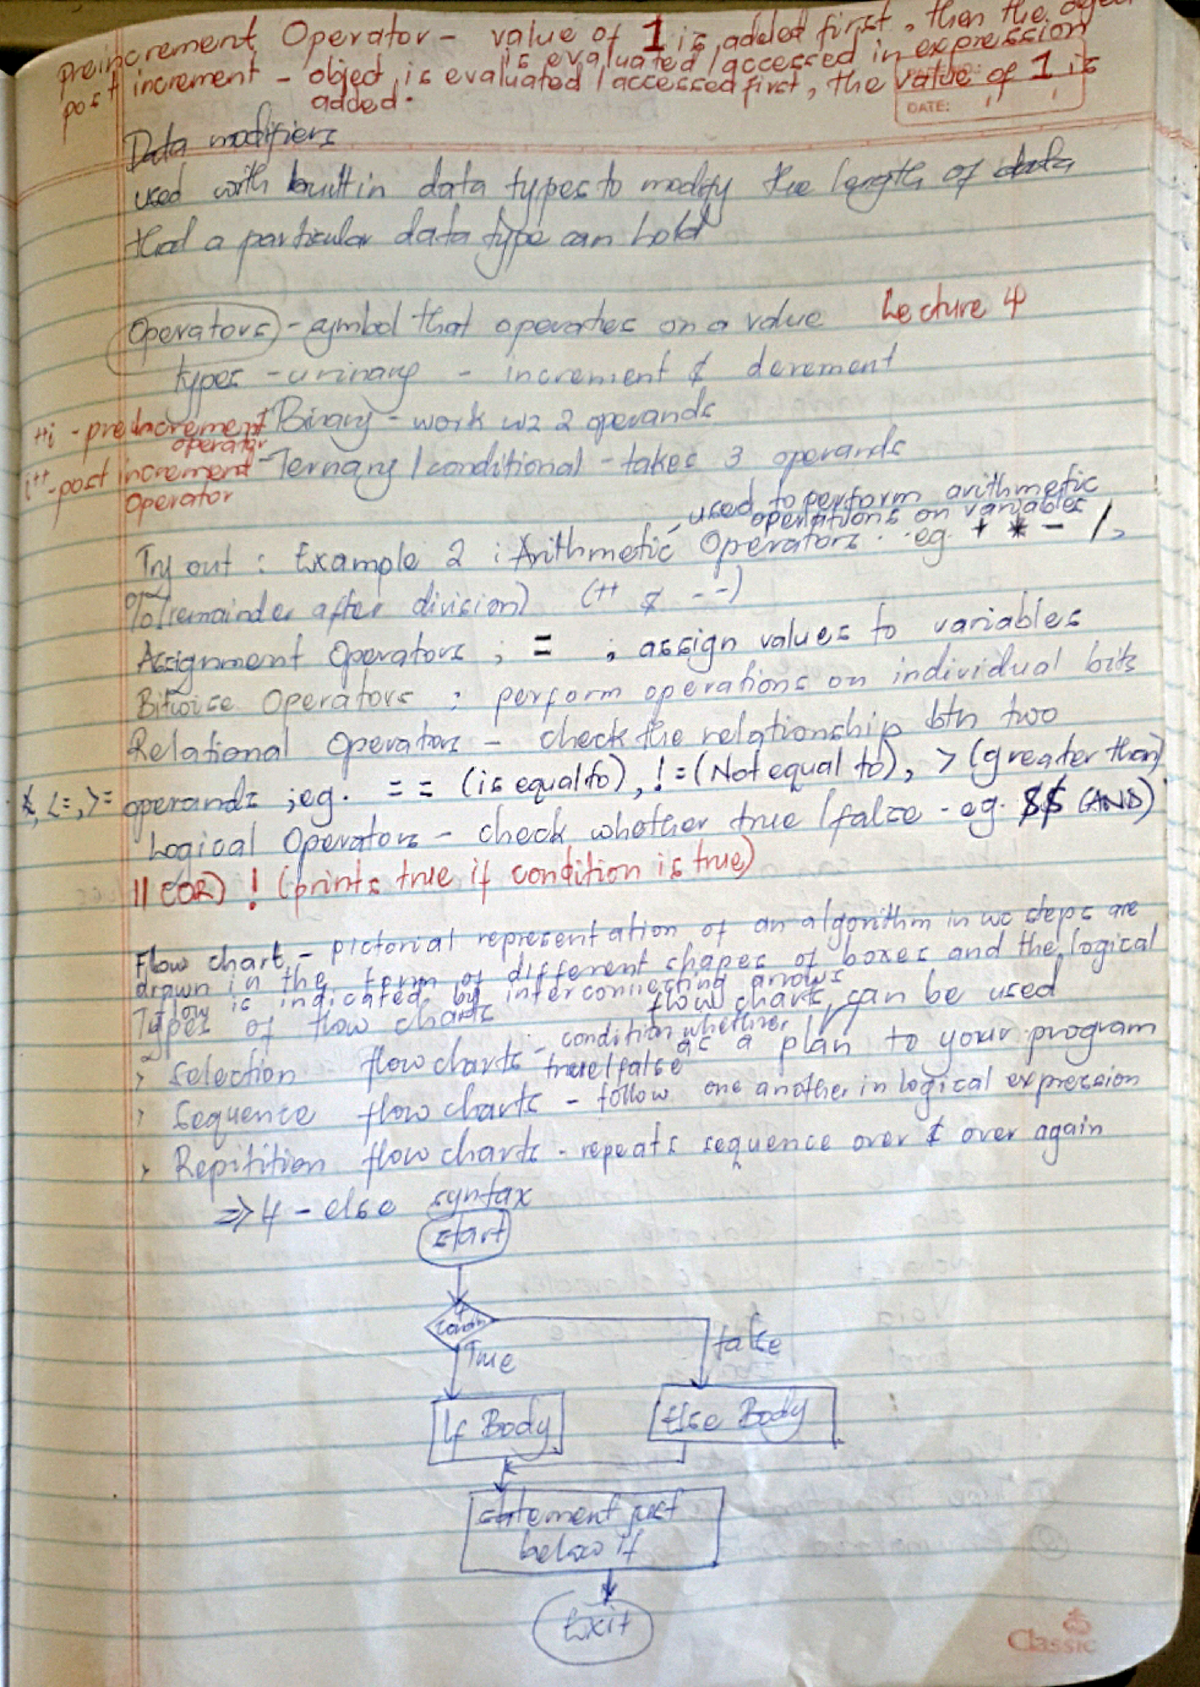 Preincrement Operator - value of 1 is added first, then the object
is evaluated / accessed in expression
post increment - object is evaluated / accessed first, the value of 1 is
added.
DATE:
Data modifiers
used with builtin data types to modify the length of data
that a particular data type can hold
Operators - symbol that operates on a value Lecture 4
types - urinary - increment & derement
++i - preincrement operator
Binary - work wz 2 operands
i++ - post increment Operator
- Ternary / conditional - takes 3 operands
used to perform arithmetic
operations on variables
Try out : Example 2 : Arithmetic Operators. eg + * - /,
%(remainder after division) (++ & --)
Assignment Operators ; = ; assign values to variables
Bitwise Operators ; perform operations on individual bits
Relational Operators - check the relationship btn two
operands ; eg. == (is equal to), != (Not equal to), > (greater than)
<, <=, >=
Logical Operators - check whether true / false - eg. $$ (AND)
|| (OR) ! (prints true if condition is true)
Flow chart - pictorial representation of an algorithm in wc steps are
drawn in the form of different shapes of boxes and the logical
flow is indicated by interconnecting arrows
Types of flow charts
flow charts can be used
as a plan to your program
> Selection flow charts - condition whether
true/false
> Sequence flow charts - follow one another in logical expression
> Repitition flow charts - repeats sequence over & over again
⇒ If - else syntax
start
True
false
If Body
Else Body
statement just
below if
Exit
Classic